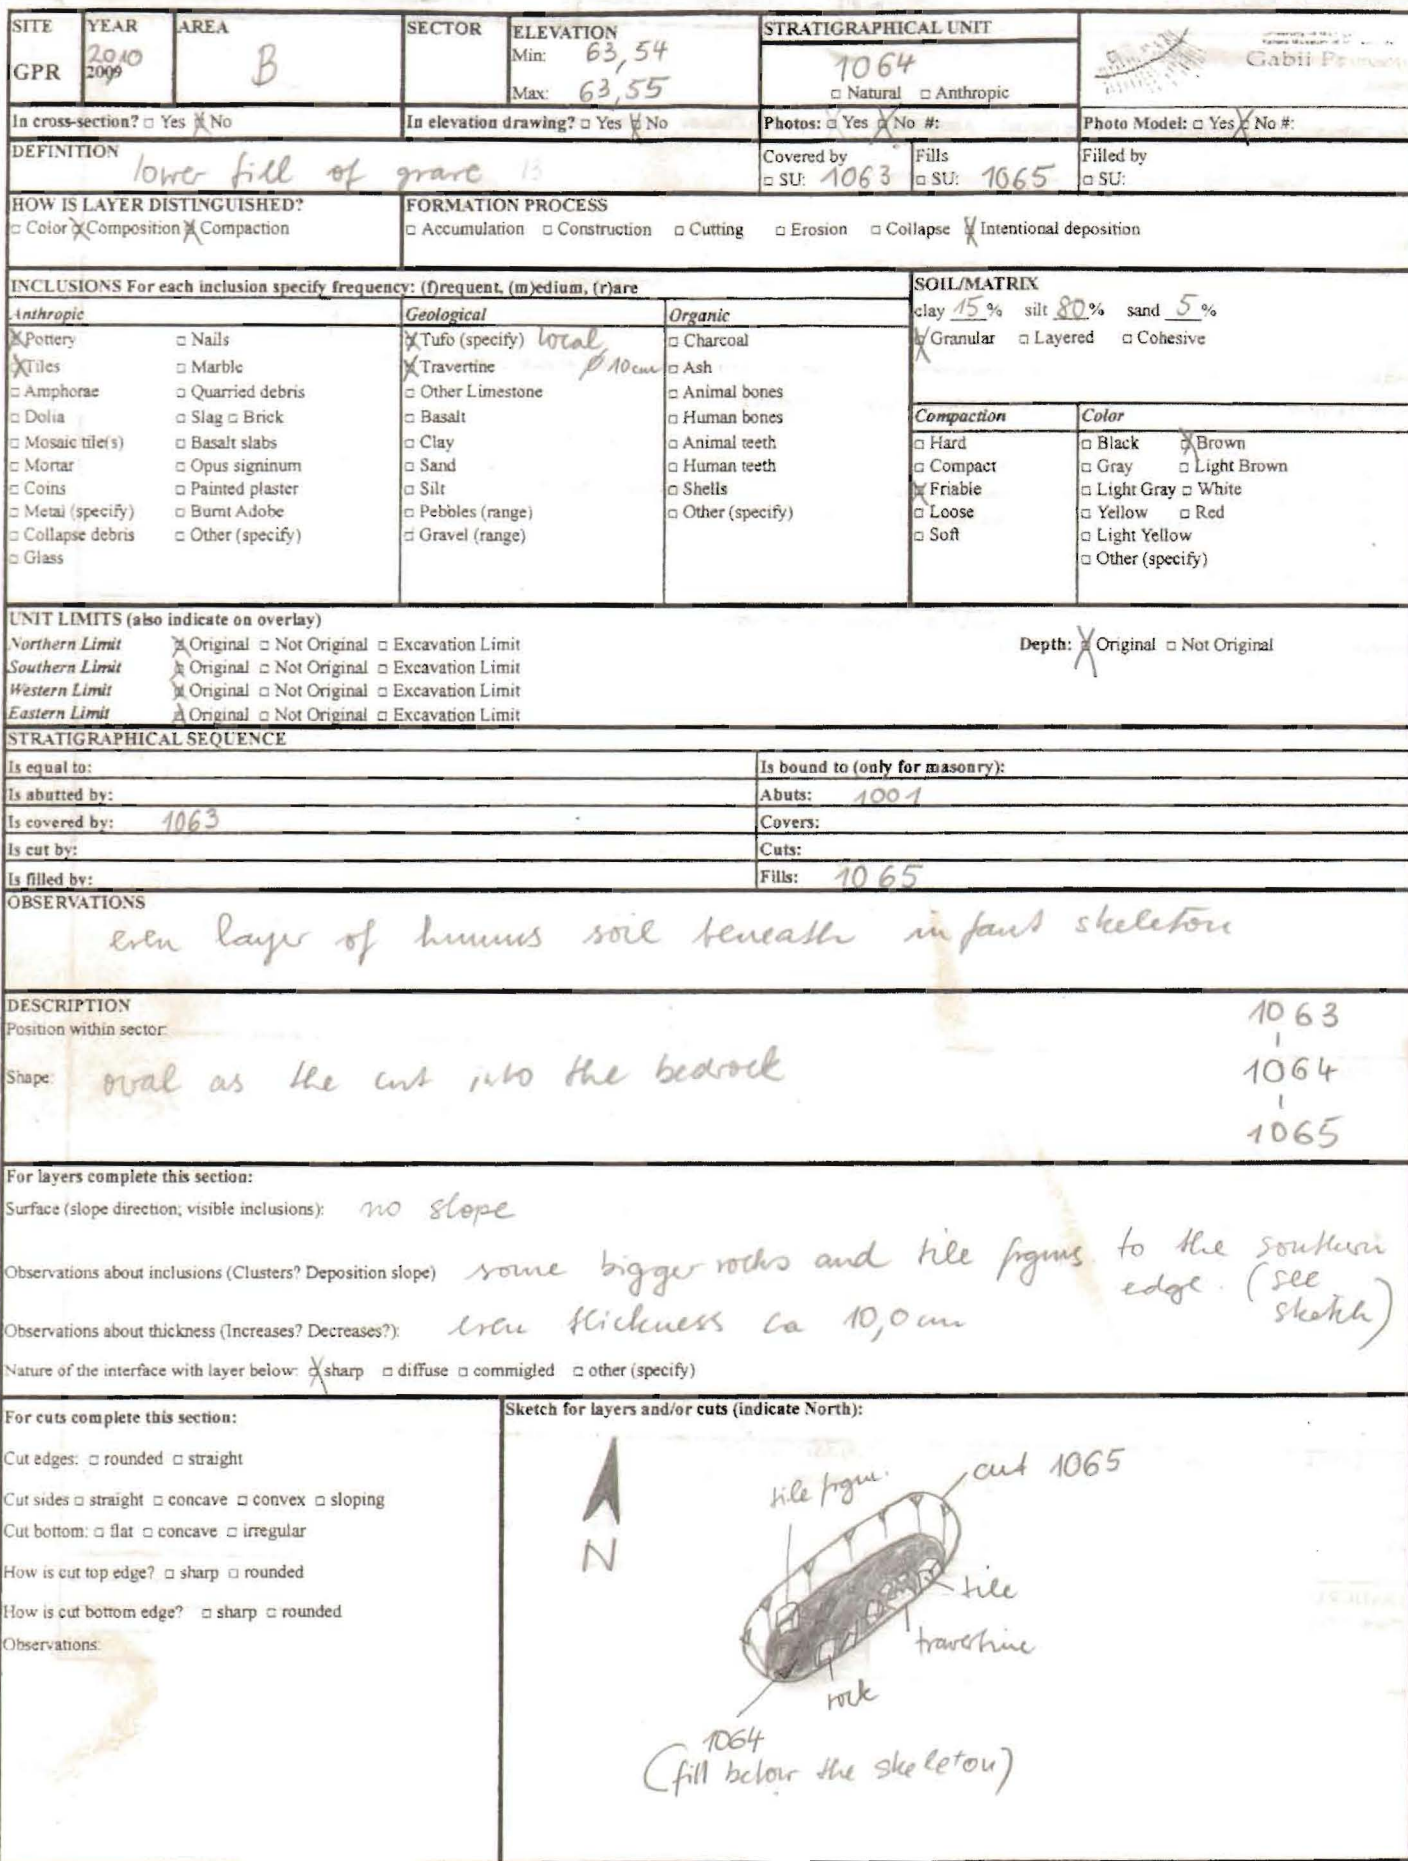 SITE YEAR AREA SECTOR ELEVATION STRATIGRAPHICAL UNIT
GPR 2010 2009 B Min: 63,54 1064
Max: 63,55 □ Natural □ Anthropic
Gabii
In cross-section? □ Yes ☒ No In elevation drawing? □ Yes ☒ No Photos: □ Yes ☒ No #: Photo Model: □ Yes ☒ No #:
DEFINITION lower fill of grave 13 Covered by □ SU: 1063 Fills □ SU: 1065 Filled by □ SU:
HOW IS LAYER DISTINGUISHED? FORMATION PROCESS
□ Color ☒ Composition ☒ Compaction □ Accumulation □ Construction □ Cutting □ Erosion □ Collapse ☒ Intentional deposition
INCLUSIONS For each inclusion specify frequency: (f)requent, (m)edium, (r)are
Anthropic
☒ Pottery □ Nails
☒ Tiles □ Marble
□ Amphorae □ Quarried debris
□ Dolia □ Slag □ Brick
□ Mosaic tile(s) □ Basalt slabs
□ Mortar □ Opus signinum
□ Coins □ Painted plaster
□ Metal (specify) □ Burnt Adobe
□ Collapse debris □ Other (specify)
□ Glass
Geological
☒ Tufo (specify) local
☒ Travertine ø 10cm
□ Other Limestone
□ Basalt
□ Clay
□ Sand
□ Silt
□ Pebbles (range)
□ Gravel (range)
Organic
□ Charcoal
□ Ash
□ Animal bones
□ Human bones
□ Animal teeth
□ Human teeth
□ Shells
□ Other (specify)
SOIL/MATRIX
clay 15 % silt 80 % sand 5 %
☒ Granular □ Layered □ Cohesive
Compaction
□ Hard
□ Compact
☒ Friable
□ Loose
□ Soft
Color
□ Black ☒ Brown
□ Gray □ Light Brown
□ Light Gray □ White
□ Yellow □ Red
□ Light Yellow
□ Other (specify)
UNIT LIMITS (also indicate on overlay)
Northern Limit ☒ Original □ Not Original □ Excavation Limit Depth: ☒ Original □ Not Original
Southern Limit ☒ Original □ Not Original □ Excavation Limit
Western Limit ☒ Original □ Not Original □ Excavation Limit
Eastern Limit ☒ Original □ Not Original □ Excavation Limit
STRATIGRAPHICAL SEQUENCE
Is equal to: Is bound to (only for masonry):
Is abutted by: Abuts: 1001
Is covered by: 1063 Covers:
Is cut by: Cuts:
Is filled by: Fills: 1065
OBSERVATIONS
even layer of humus soil beneath infant skeleton
DESCRIPTION
Position within sector:
Shape: oval as the cut into the bedrock
1063
1064
1065
For layers complete this section:
Surface (slope direction; visible inclusions): no slope
Observations about inclusions (Clusters? Deposition slope) some bigger rocks and tile frgms. to the southern
edge. (see
sketch)
Observations about thickness (Increases? Decreases?): even thickness ca 10,0 cm
Nature of the interface with layer below: ☒ sharp □ diffuse □ commigled □ other (specify)
For cuts complete this section:
Cut edges: □ rounded □ straight
Cut sides □ straight □ concave □ convex □ sloping
Cut bottom: □ flat □ concave □ irregular
How is cut top edge? □ sharp □ rounded
How is cut bottom edge? □ sharp □ rounded
Observations:
Sketch for layers and/or cuts (indicate North):
N
tile frgm.
cut 1065
tile
travertine
rock
1064
(fill below the skeleton)